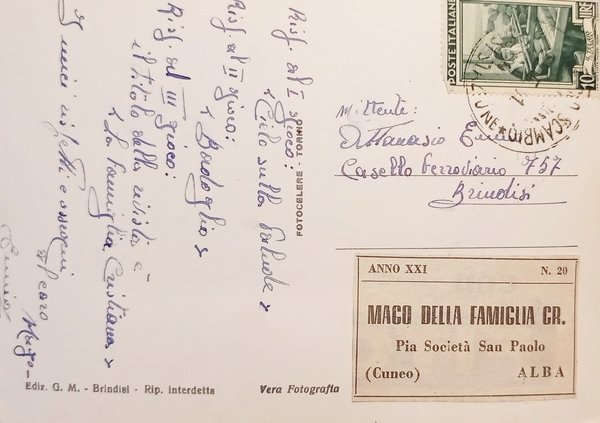 Risp. al I gioco:
« Cielo sulla Palude »
Risp. al II gioco:
« Badoglio »
Risp. al III gioco:
il titolo della rivista è
« La Famiglia Cristiana »
rispetti e ossequi
al caro Mago -
Ennio
FOTOCELERE - TORINO
POSTE ITALIANE
LIRE
10
SCAMBIO
Mittente:
Attanasio Ennio
Casello Ferroviario 757
Brindisi
ANNO XXI N. 20
MAGO DELLA FAMIGLIA CR.
Pia Società San Paolo
(Cuneo) ALBA
Ediz. G. M. - Brindisi - Rip. interdetta
Vera Fotografia